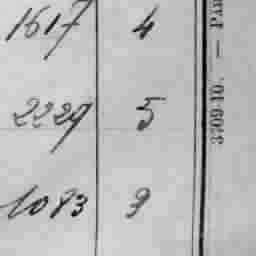 1617 4
2229 5
1083 9
3709-10. — PAR